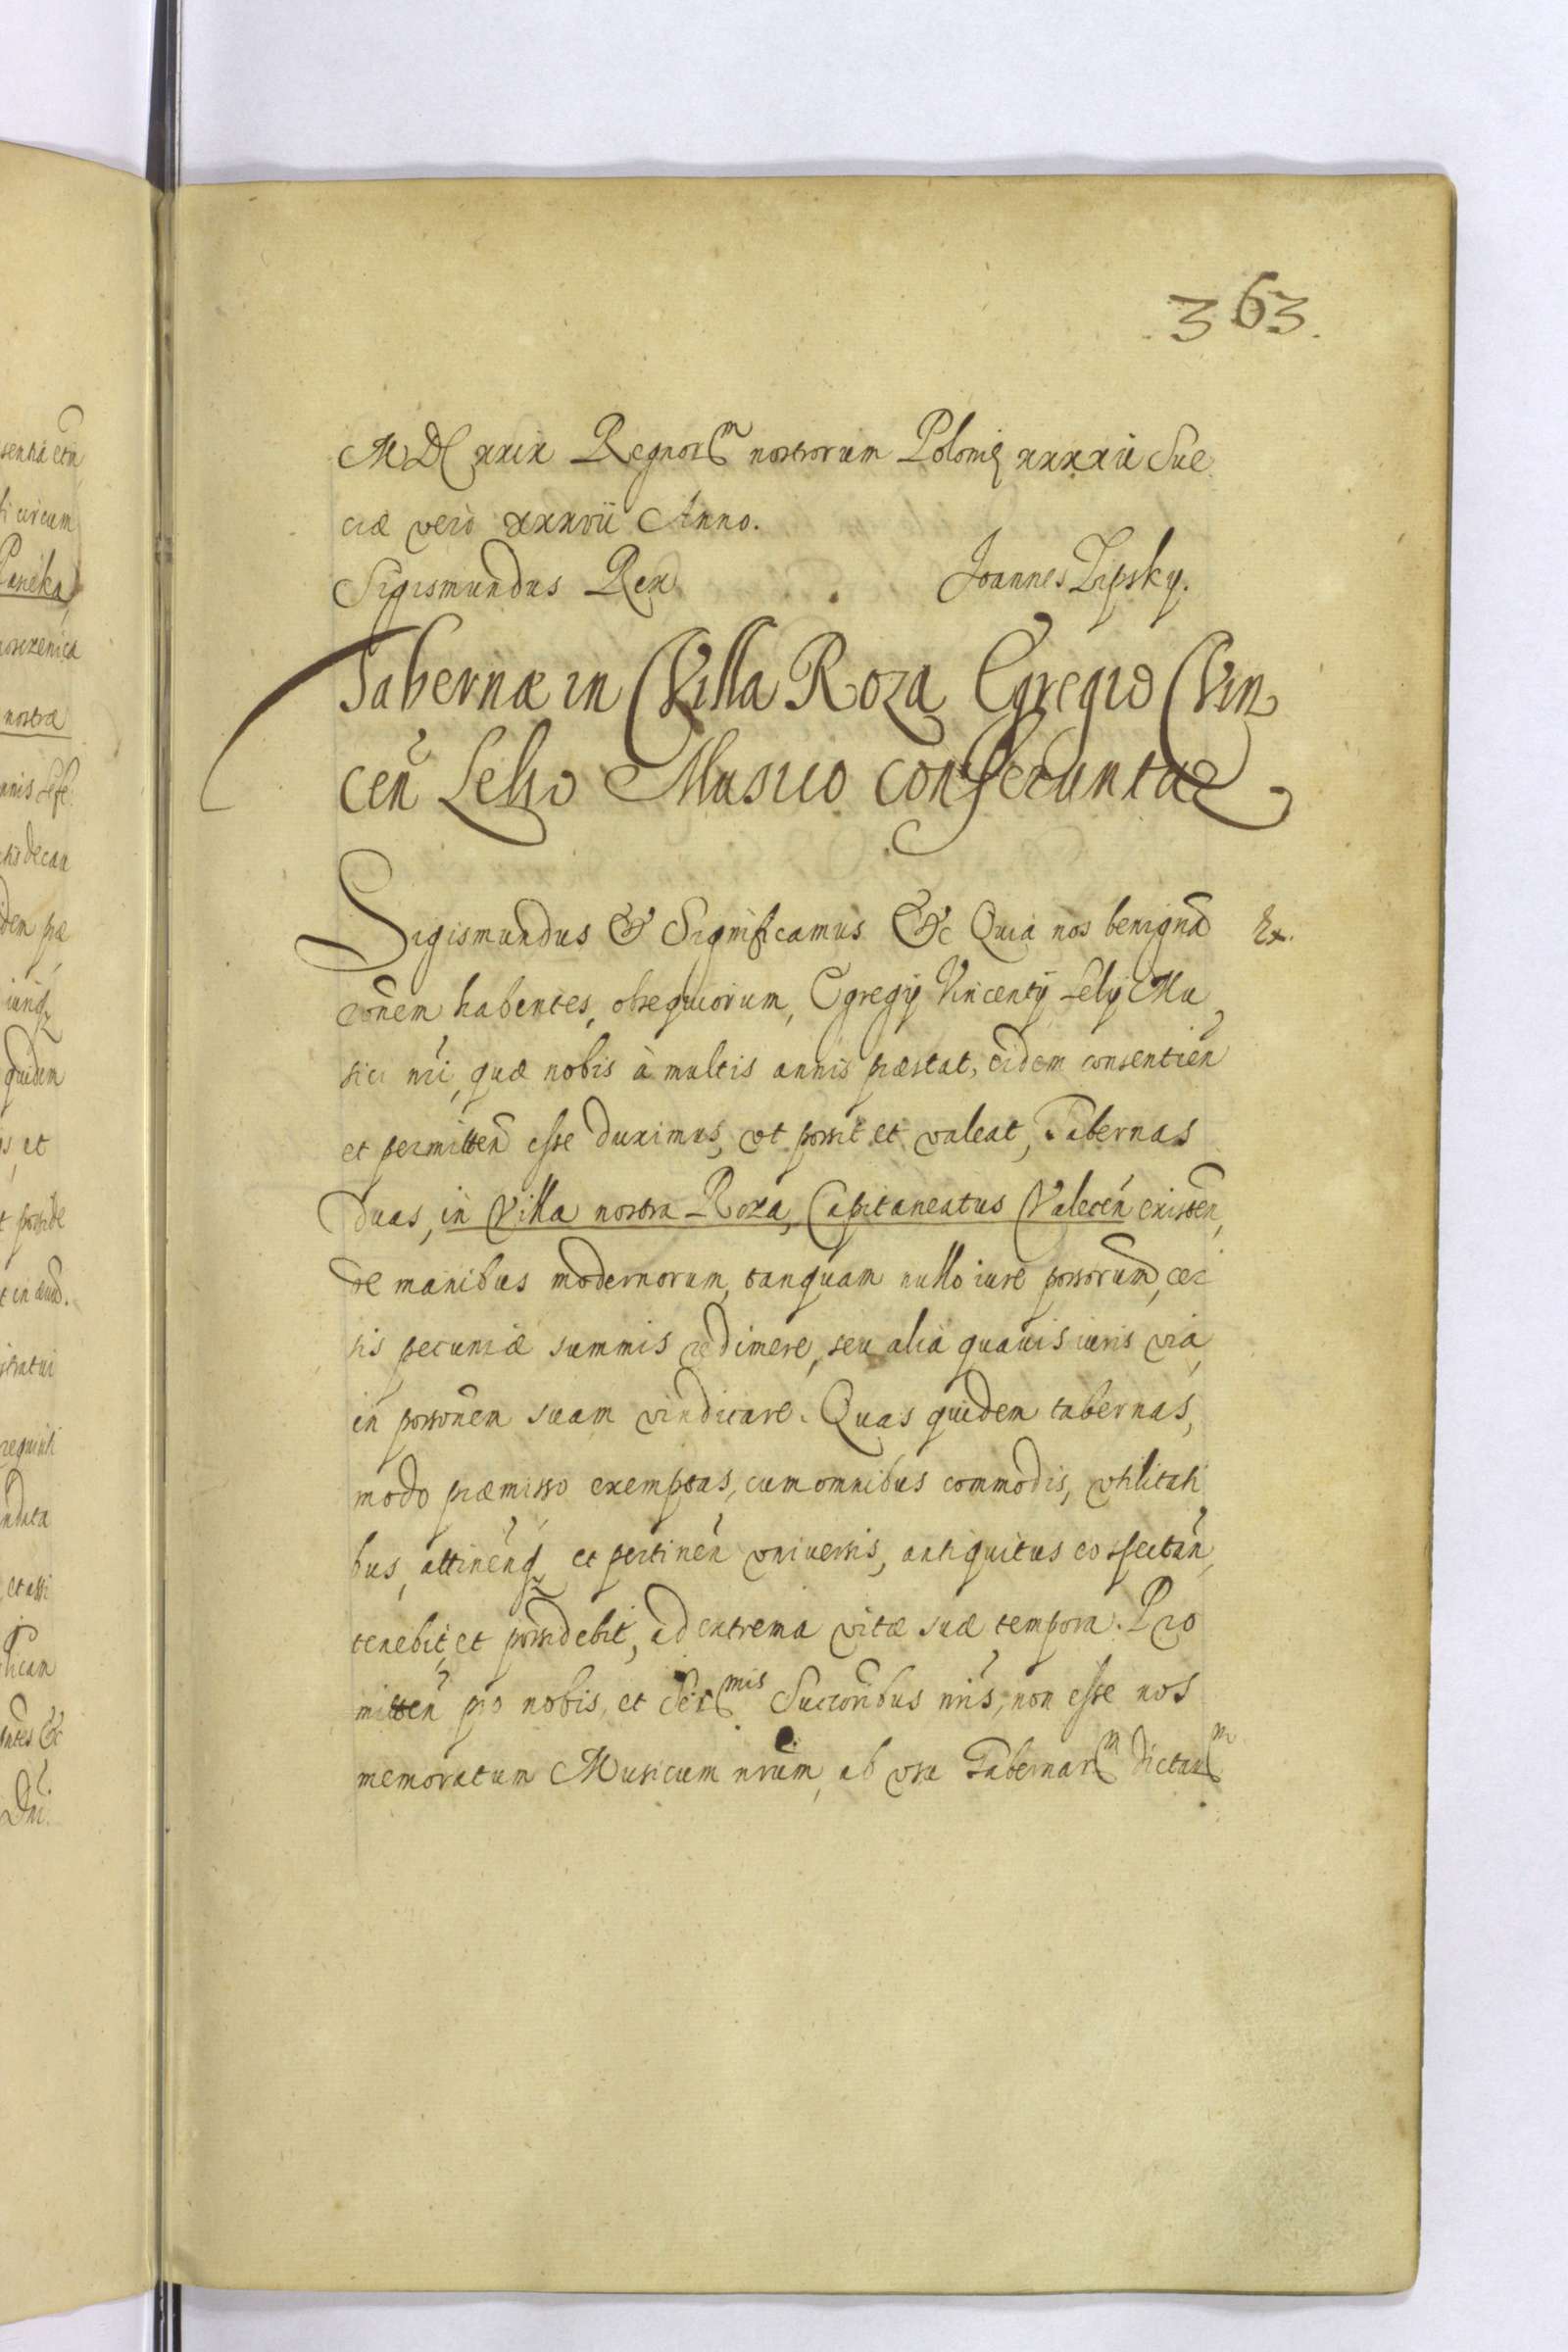 363.
MDCxxix Regnor(m nostrorum Polonię xxxxii Sue
ciæ vero xxxvii Anno.
Sigismundus Rex Joannes Lipsky.
Tabernæ in Villa Roza Egregio Vin
cen Lelio Musico conferuntur
Sigismundus & Significamus &c Quia nos benignā Ex.
rōnem habentes, obsequiorum, Egregij Vincentij Lelij Mu
sici nri, quæ nobis à multis annis præstat, eidem consentien
et permitten esse duximus, vt possit et valeat, Tabernas
duas, in Villa nostra Roza, Capitaneatus Valecen existen,
de manibus modernorum, tanquam nullo iure possorum, cer
tis pecuniæ summis redimere, seu alia quauis iuris via,
in possonem suam vindicare. Quas quidem tabernas,
modo præmisso exemptas, cum omnibus commodis, vtilitati
bus, attinenq et pertinen vniuersis, antiquitus eo spectan,
tenebit, et possidebit, ad extrema vitæ suæ tempora. Pro
mitten pro nobis, et Ser(mis Succoribus nris, non esse nos
memoratum Musicum nrum, ab vsu Tabernar(m dictar(m
sentia etn
ti circum
nostræ
quidem
s, et
t in
Dni.